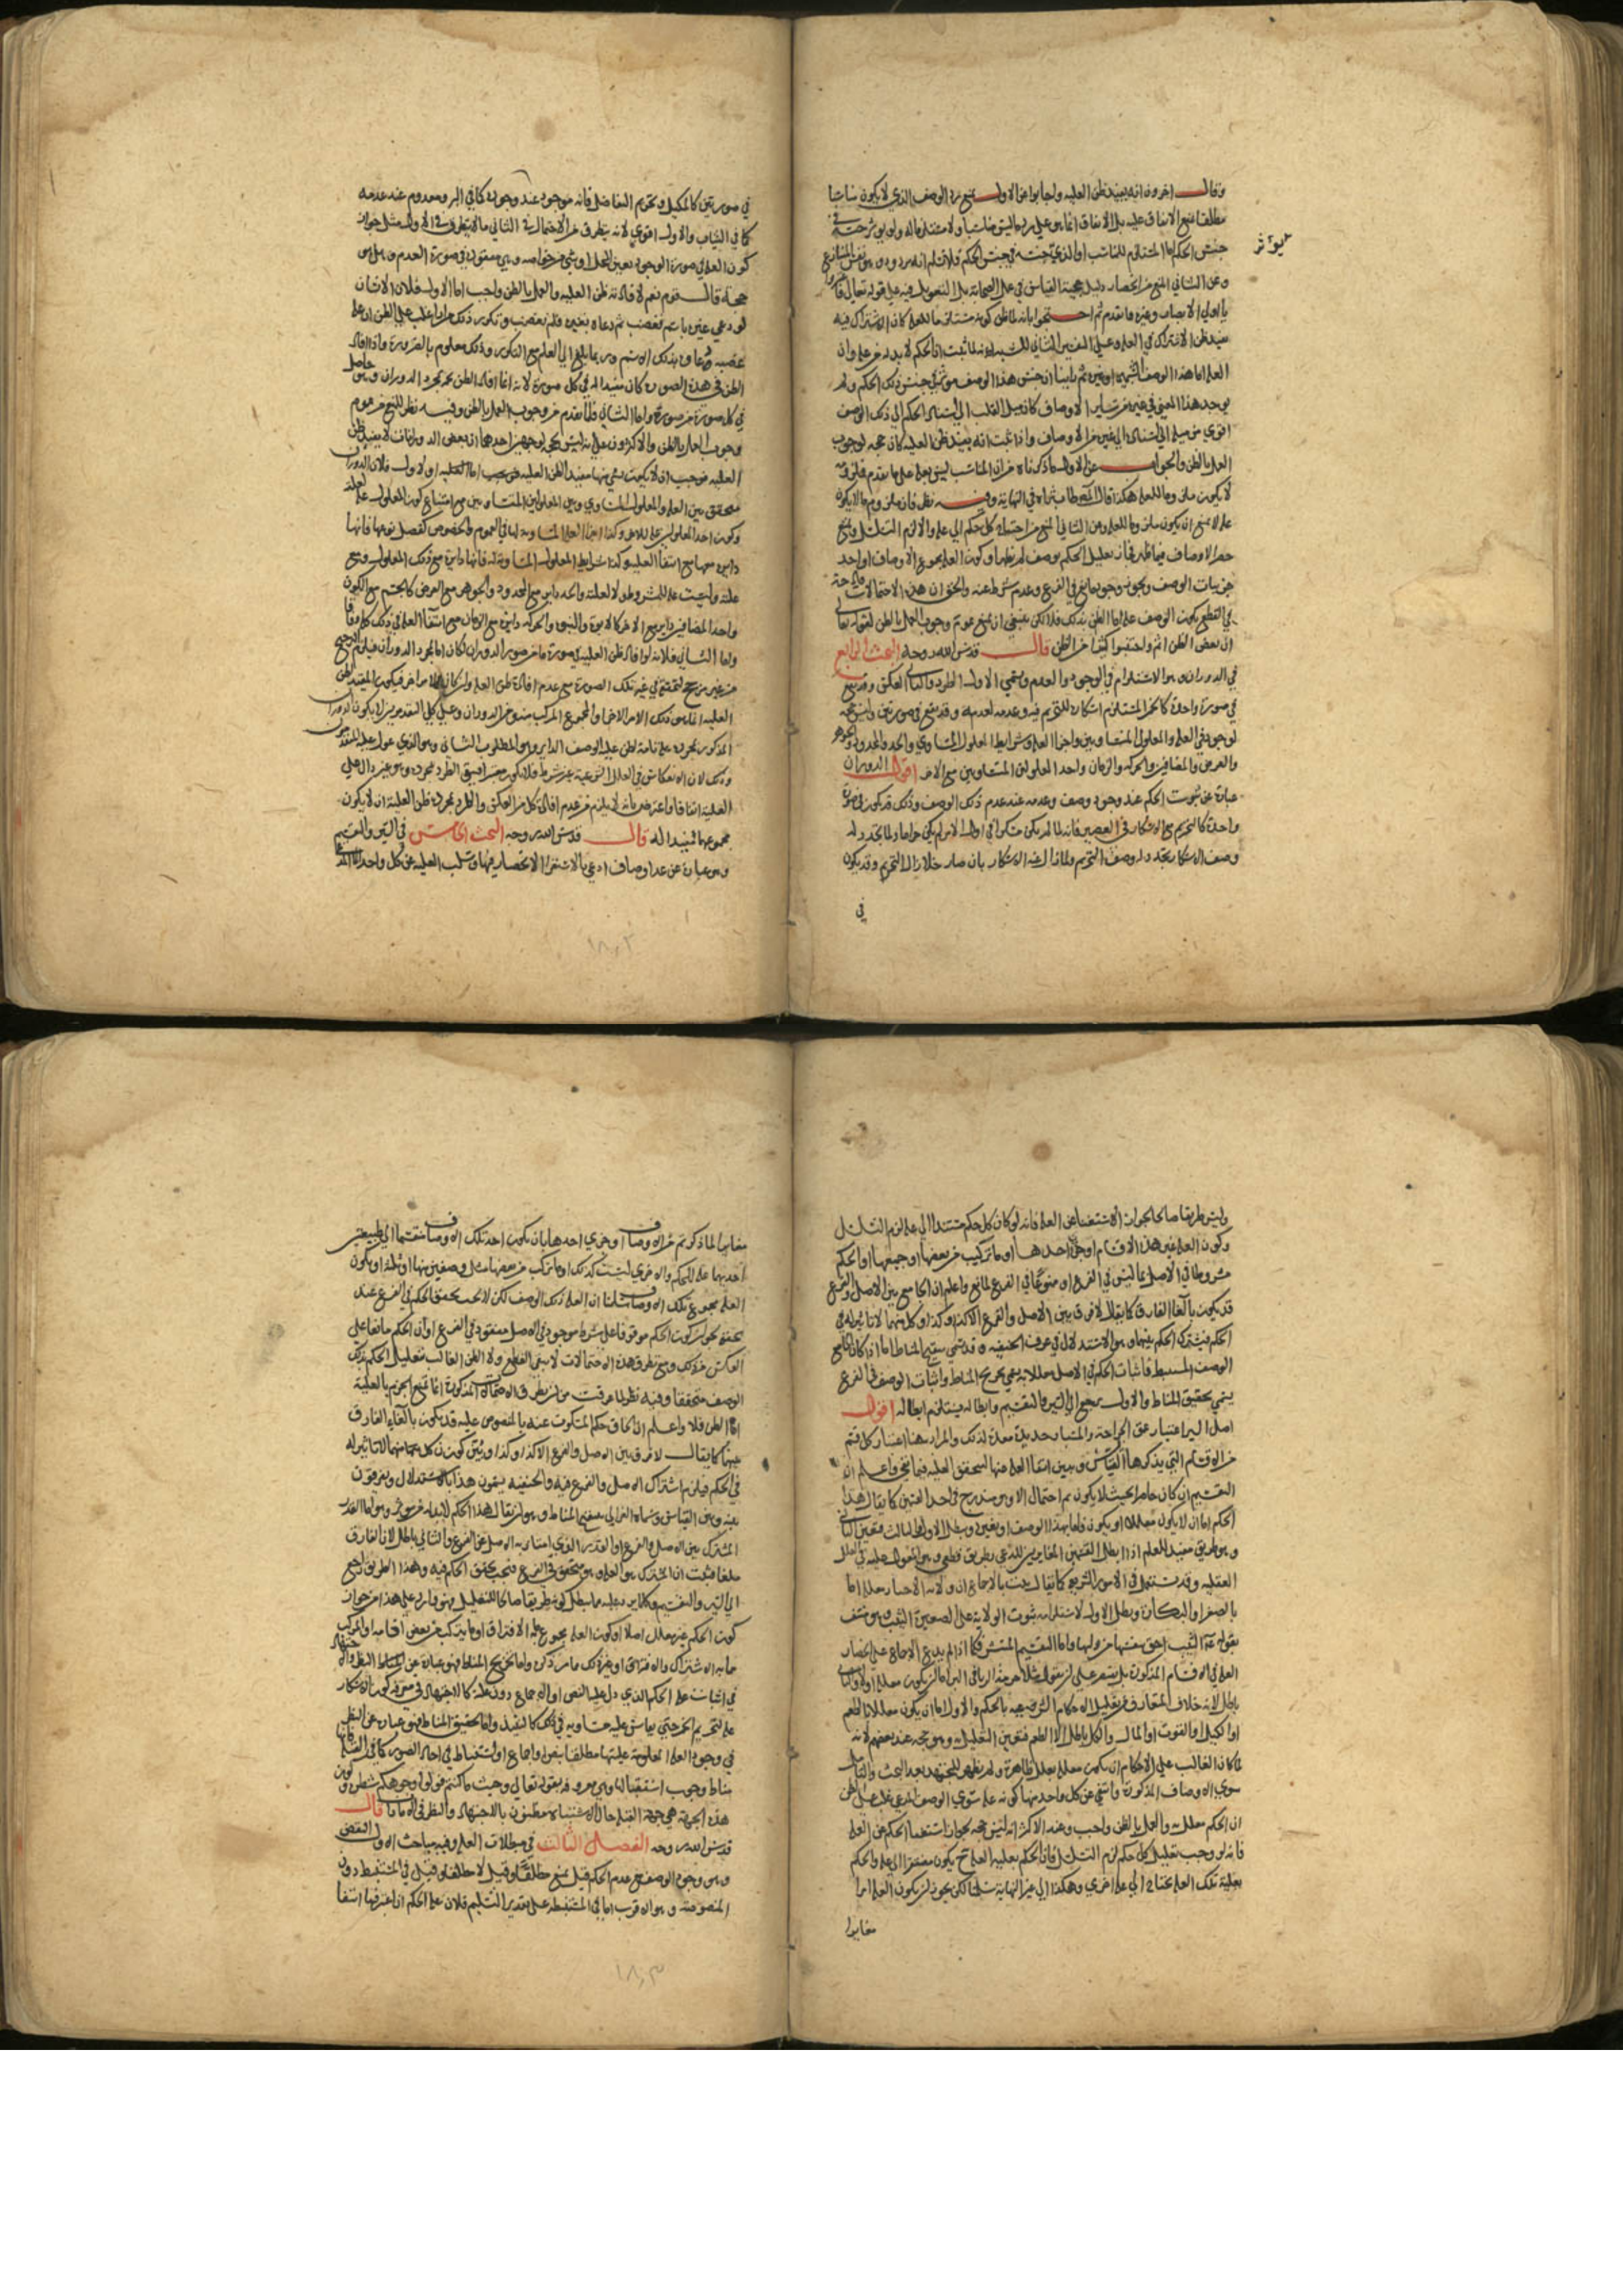 وقال اخرون انه يفيد ظن العلية واجابوا عن الاول بمنع رد الوصف الذي لا يكون مناسبا
مطلقا
جنس الحكم اما المستلزم للمناسب او الذي جنسه في جنس الحكم فلا نسلم انه مردود
وعن الثاني المنع من انحصار دليل حجية القياس في عمل الصحابة بل التعويل فيه على قوله تعالى
يا اولي الابصار وغيره مما تقدم ثم احتجوا بانه
يفيد ظن الاشتراك في العلة وعلى التفسير الثاني للشبه انه لما ثبت ان الحكم لا بد له من علة وان
العلة اما هذا الوصف او غيره ثم راينا ان جنس هذا الوصف مؤثر في جنس ذلك الحكم ولم
يوجد هذا المعنى في غيره من سائر الاوصاف كان ميل القلب الى اسناد الحكم الى ذلك الوصف
اقوى من ميله الى اسناده الى غيره من الاوصاف واذا ثبت انه يفيد ظن العلية كان حجة لوجوب
العمل بالظن والجواب عن الاول ما ذكرناه من ان المناسب ليس بعلة على ما تقدم
علة لا يمنع ان يكون ملزوما للعلة وعن الثاني المنع من احتياج كل حكم الى علة والا لزم التسلسل ومنع
حصر الاوصاف
جزييات الوصف ويجوز وجود مانع في الفرع وعدم شرط عنه والحق ان هذه الاحتمالات
في القطع بكون الوصف علة اما الظن بذلك فلا لكن
ان بعض الظن اثم واجتنبوا كثيرا من الظن قال قدس الله روحه البحث الرابع
في الدوران وهو الاستلزام في الوجود والعدم ويسمى الاول الطرد والثاني العكس وقد يقع
في صورة واحدة كالخمر المستلزم اسكاره للتحريم فيه وعدمه لعدمه وقد يقع في صورتين وليس بحجة
لوجوده في العلة والمعلول المتساويين واجزاء العلة وشرايط المعلول المساوي والحد والمحدود والجوهر
والعرض والمضافين والحركة والزمان واحد المعلولين المتساويين مع الاخر اقول الدوران
عبارة عن ثبوت الحكم عند وجود وصف وعدمه عند عدم ذلك الوصف وذلك قد يكون في صورة
واحدة كالتحريم مع الاسكار في العصير فانه لما لم يكن مسكرا في اول الامر لم يكن حراما ولما تجدد له
وصف الاسكار تجدد له وصف التحريم ولما زال عنه الاسكار بان صار خلا زال التحريم وقد يكون
في
في صورتين كالمكيل وتحريم التفاضل فانه موجود عند وجوده كما في البر ومعدوم عند عدمه
كما في الثياب والاول اقوى لانه يتطرق من الاحتمال في الثاني ما لا يتطرق في الاول مثل جواز
كون العلة في صورة الوجود تعين المحل او شي من خواصه وهي مفقودة في صورة العدم وهل هو
حجة قال قوم نعم لافادته ظن العلية والعمل بالظن واجب اما الاول فلان الانسان
لو دعي غيره باسم فغضب ثم دعاه بغيره فلم يغضب وتكرر ذلك مرارا غلب على الظن ان علة
غضبه دعاؤه بذلك الاسم وربما بلغ الى العلم مع التكرر وذلك معلوم بالضرورة واذا افاد
الظن في هذه الصورة كان مفيدا له في كل صورة لانه انما افاد الظن بمجرد الدوران وهو حاصل
في كل صورة من صوره واما الثاني فلما تقدم من وجوب العمل بالظن وفيه نظر للمنع من عموم
وجوب العمل بالظن والاكثرون على انه ليس بحجة لوجهين احدهما ان بعض الدورانات لا يفيد ظن
العلية فوجب ان لا يكون شي منها مفيدا لظن العلية
متحقق بين العلة والمعلول المساوي وبين المعلولين المتساويين مع امتناع كون المعلول علة لعلته
وكون احد المعلولين علة للاخر
دايرة معها مع انتفاء العلية وكذا شرايط المعلول المساوية له فانها دايرة مع ذلك المعلول ومع
علته وليست علة للمشروط ولا لعلته والحد داير مع المحدود والجوهر مع العرض كالجسم مع الكون
واحد المضافين داير مع الاخر كالابوة والبنوة والحركة دايرة مع الزمان مع انتفاء العلية في ذلك كله وفاقا
واما الثاني فلانه لو افاد ظن العلية في صورة ما من صور الدوران لكان اما لمجرد الدوران فيلزم الترجيح
من غير مرجح لتحققه في غير تلك الصورة مع عدم افادة ظن العلة وان كان لامر اخر فيكون المفيد لظن
العلية اما هو ذلك الامر الاخر او المجموع المركب منه ومن الدوران وعلى كل التقديرين لا يكون الدوران
المذكور بمجرده علة
وذلك لان الانعكاس في العلل الشرعية غير شرط
العلية
مجموعهما مفيدا له قال قدس الله روحه البحث الخامس في السبر والتقسيم
وهو عبارة عن عد اوصاف ادعي بالاستقراء الانحصار فيها وسلب العلية عن كل واحد الا المدعى
وليس طريقا صالحا لجواز الاستغناء عن العلة فانه لو كان كل حكم مستندا الى علة لزم التسلسل
وكون العلة غير هذه الاقسام او جزء احدها او ما تركب من بعضها او جميعها او الحكم
مشروطا في الاصل بما ليس في الفرع او ممنوعا في الفرع لمانع واعلم ان الجامع بين الاصل والفرع
قد يكون بالغاء الفارق كما يقال لا فرق بين الاصل والفرع الا كذا او كذا وكل منهما لا تاثير له في
الحكم فيشترك الحكم بينهما وهو الاستدلال في عرف الحنفية وقد سمي بتنقيح المناط اما اذا كان الجامع
الوصف المستنبط فاثبات الحكم في الاصل معللا به يسمى تخريج المناط واثبات الوصف في الفرع
يسمى تحقيق المناط والاول يرجع الى السبر والتقسيم وابطاله يستلزم ابطاله اقول
اصل السبر اعتبار عمق الجراحة والمسبار حديدة معدة لذلك والمراد هنا اعتبار كل قسم
من الاقسام التي يذكرها القياس وتبيين انتفاء العلة عنها لتحقق العلية فيما بقي واعلم ان
التقسيم ان كان حاصرا بحيث لا يكون ثم احتمال الا وهو مندرج في احد القسمين كما يقال هذا
الحكم اما ان لا يكون معللا او يكون
وهو طريق مفيد للعلم اذا ابطل القسمين المغايرين للمدعى بطريق قطعي وهو المعول عليه في العلل
العقلية وقد يستعمل في الامور الشرعية كما يقال ثبت بالاجماع ان ولاية الاجبار معللة اما
بالصغر او البكارة وبطل الاول لاستلزامه ثبوت الولاية على الصغيرة الثيب وهو منتف
بقوله عم الثيب احق بنفسها من وليها واما التقسيم المنتشر فكما اذا لم يدع الاجماع على انحصار
العلة في الاقسام المذكورة بل يقتصر على
باطل لانه خلاف المتعارف من تعليل الاحكام الشرعية
او الكيل او القوت او المال والكل باطل الا الطعم فتعين التعليل به وهو حجة عند بعضهم لانه
لما كان الغالب على الاحكام ان تكون معللة بعلل ظاهرة ولم يظهر للمجتهد بعد البحث والتامل
سوى الاوصاف المذكورة وانتفى عن كل واحد منها كونه علة سوى الوصف المدعى غلب على الظن
ان الحكم معلل به والعمل بالظن واجب وعند الاكثر انه ليس بحجة لجواز استغناء الحكم عن العلة
فانه لو وجب تعليل كل حكم لزم التسلسل فان الحكم بعلية العلة ح يكون مفتقرا الى علة والحكم
بعلية تلك العلة محتاج الى علة اخرى وهكذا الى غير النهاية سلمنا لكن يجوز ان يكون العلة امرا
مغايرا
مغايرا لما ذكرتم من الاوصاف
احديهما علة للحكم والاخرى ليست كذلك او ما تركب من بعضها مثل وصفين منها او ثلثة او يكون
العلة مجموع تلك الاوصاف سلمنا ان العلة ذلك الوصف لكن لا يجب تحقق الحكم في الفرع عند
تحققه لجواز كون الحكم موقوفا على شرط موجود في الاصل مفقود في الفرع او ان للحكم مانعا على
العكس من ذلك ومع تطرق هذه الاحتمالات لا يبقى القطع ولا الظن الغالب بتعليل الحكم بذلك
الوصف متحققا وفيه نظر لما عرفت من ان تطرق الاحتمالات المذكورة انما تمنع الجزم بالعلية
اما الظن فلا واعلم ان الحاق حكم المسكوت عنه بالمنصوص عليه قد يكون بالغاء الفارق
بينهما كما يقال لا فرق بين الاصل والفرع الا كذا او كذا ويبين كون كل منهما لا تاثير له
في الحكم فيلزم اشتراك الاصل والفرع فيه والحنفية يسمون هذا بالاستدلال ويفرقون
بينه وبين القياس وسماه الغزالي تنقيح المناط وهو ان يقال هذا الحكم لا بد له من مؤثر وهو اما القدر
المشترك بين الاصل والفرع او القدر الذي امتاز به الاصل عن الفرع والثاني باطل لان الفارق
ملغا فثبت ان المشترك هو العلة وهو متحقق في الفرع فيجب تحقق الحكم فيه وهذا الطريق راجع
الى السبر والتقسيم
كون الحكم غير معلل اصلا او كون العلة مجموع
ما به الاشتراك والافتراق او غير ذلك مما مر ذكره واما تخريج المناط فهو عبارة عن
في اثبات علة الحكم الذي دل عليه النص او الاجماع دون علته كالاجتهاد في معرفة كون الاسكار
علة لتحريم الخمر حتى يقاس عليه مساويه في ذلك كالنبيذ واما تحقيق المناط فهو عبارة عن النظر
في وجود العلة المعلومة عليتها مطلقا بنص او اجماع او استنباط في احاد الصور كما في القبلة فانها
مناط وجوب استقبالها وهي معروفة بقوله تعالى وحيث ما كنتم فولوا وجوهكم شطره وكون
هذه الجهة هي جهة القبلة حال الاشتباه مظنون بالاجتهاد والنظر في الامارات قال
قدس الله روحه الفصل الثالث في مبطلات العلة وفيه مباحث الاول النقض
وهو وجود الوصف مع عدم الحكم قيل يمنع مطلقا وقيل لا مطلقا وقيل في المستنبطة دون
المنصوصة وهو الاقرب اما في المستنبطة على تقدير التسليم فلان علة الحكم ان اعتبر فيها انتفاء